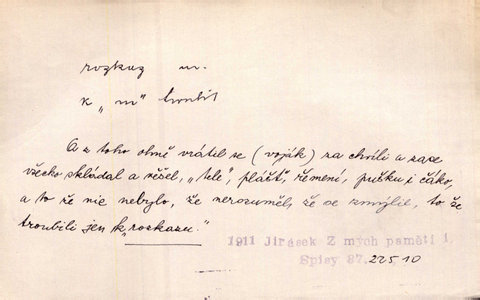 rozkaz m.
k „m" troubit
A z toho ohně vrátil se (voják) za chvíli a zase
všecko skládal a věšel, „tele", plášť, řemení, pušku i čáko,
a to že nic nebylo, že nerozuměl, že se zmýlil, to že
troubili jen k„rozkazu."
1911 Jirásek Z mých pamětí 1.
Spisy 87. 225.10